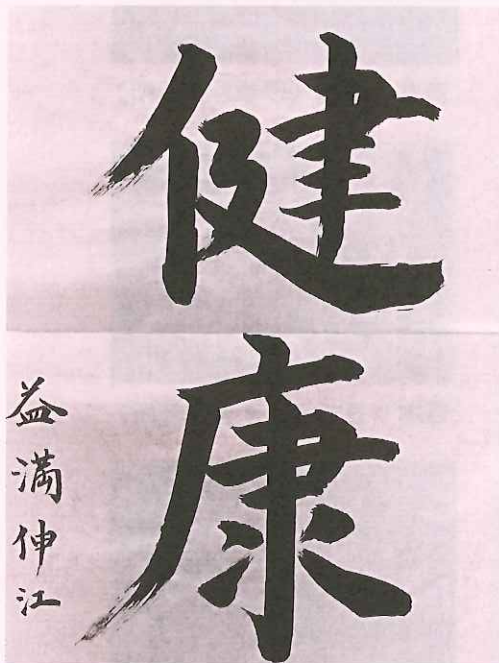 健康
益満伸江